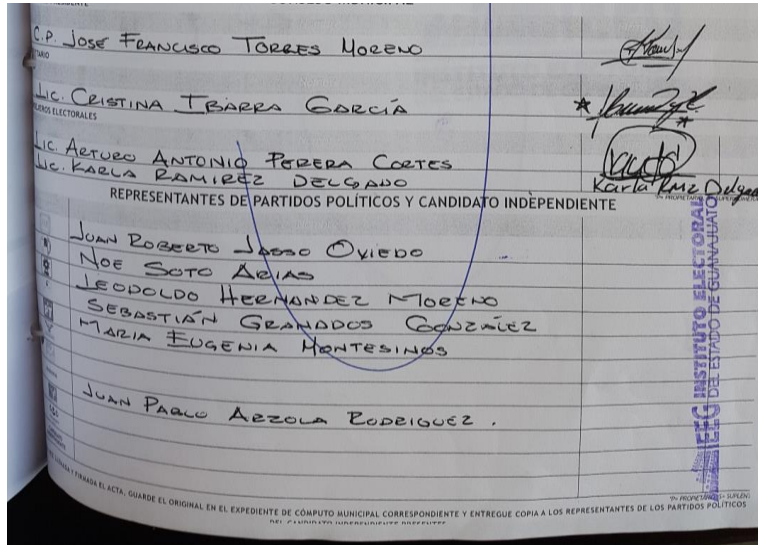 C.P. JOSÉ FRANCISCO TORRES MORENO
LIC. CRISTINA IBARRA GARCÍA
ELECTORALES
LIC. ARTURO ANTONIO PERERA CORTES
LIC. KARLA RAMIREZ DELGADO
Karla Rmz Delgado
REPRESENTANTES DE PARTIDOS POLÍTICOS Y CANDIDATO INDEPENDIENTE
JUAN ROBERTO JASSO OVIEDO
NOE SOTO ARIAS
LEODOLDO HERNANDEZ MORENO
SEBASTIÁN GRANADOS GONZÁLEZ
MARIA EUGENIA MONTESINOS
JUAN PABLO ARZOLA RODRIGUEZ.
IEEG INSTITUTO ELECTORAL
DEL ESTADO DE GUANAJUATO
Y FIRMADA EL ACTA, GUARDE EL ORIGINAL EN EL EXPEDIENTE DE CÓMPUTO MUNICIPAL CORRESPONDIENTE Y ENTREGUE COPIA A LOS REPRESENTANTES DE LOS PARTIDOS POLÍTICOS
DEL CANDIDATO INDEPENDIENTE PRESENTES